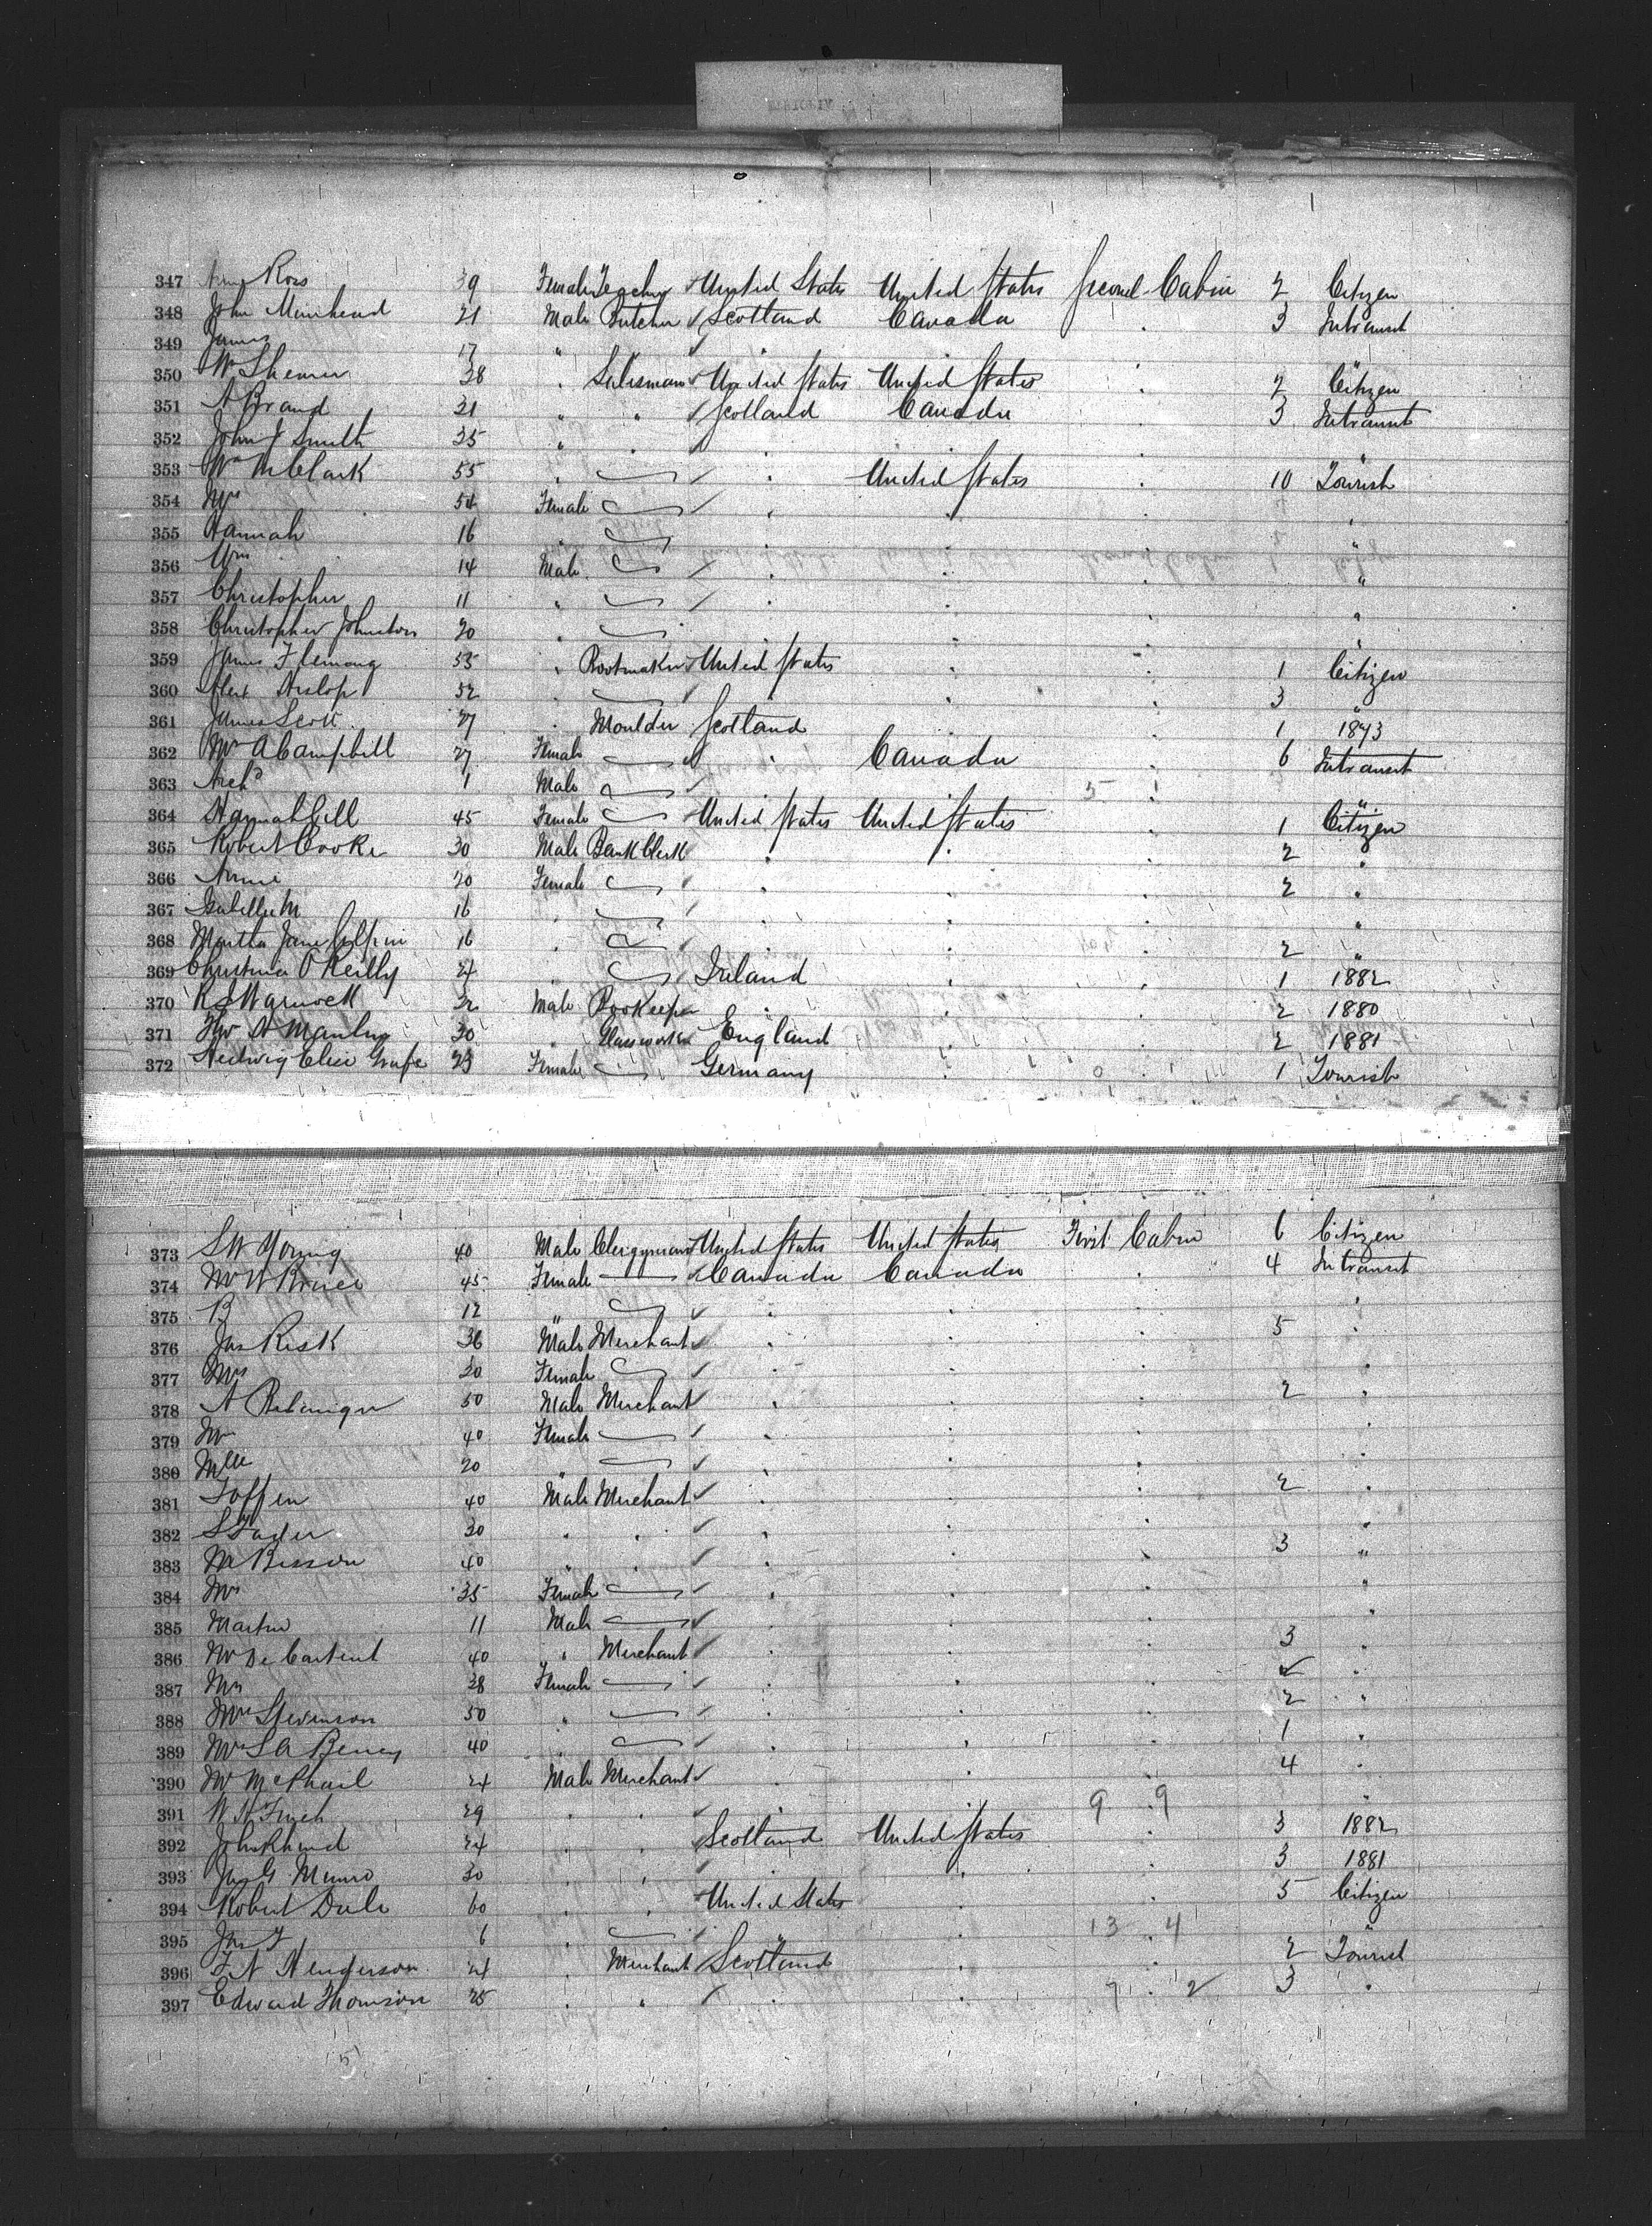 347 Ross 39 Female Teacher United States United States Second Cabin 2 Citizen
348 John Muirhead 21 Male Butcher Scotland Canada " 3 Intransit
349 James 17 " "
350 W Shearer 38 " Salesman United States United States 2 Citizen
351 A Brand 21 " " Scotland Canada 3 Intransit
352 John J Smith 25 " "
353 Wm McClark 55 " — " United States " 10 Tourist
354 Mrs 54 Female — " " "
355 Hannah 16 " — " "
356 Wm 14 Male — " " " "
357 Christopher 11 " — " "
358 Christopher Johnston 20 " — " " " "
359 James Fleming 55 " Bootmaker United States " " 1 Citizen
360 Alex Hislop 52 " — " " " 3 "
361 James Scott 27 " Moulder Scotland " " 1 1873
362 Mrs A Campbell 27 Female — " Canada " 6 Intransit
363 Archd 1 Male — 5 1
364 Hannah Gill 45 Female — United States United States " 1 Citizen
365 Robert Cooke 30 Male Bank Clerk " " " 2 "
366 Annie 20 Female — " " " 2 "
367 Isabella M 16 " — " " " "
368 Martha Jane Gilpin 16 " — " " " 2 "
369 Christina O'Reilly 24 " — Ireland " " 1 1882
370 R J Warnock 22 Male Bookeeper " " " 2 1880
371 30 " Glassworker England " " 2 1881
372 Hedwig Elise Grafe 23 Female — Germany " 0 1 Tourist
373 S W Young 40 Male Clergyman United States United States First Cabin 6 Citizen
374 Mrs W Bruce 45 Female — Canada Canada " 4 Intransit
375 B 12 " — " " " "
376 Jas Risk 36 Male Merchant " " " 5 "
377 Mrs 30 Female — " " " "
378 A 50 Male Merchant " " " 2 "
379 Mrs 40 Female — " " " "
380 Mlle 20 " — " " " "
381 40 Male Merchant " " " 2 "
382 30 " " " " " "
383 M Bisson 40 " " " " " 3 "
384 Mrs 35 Female — " " " "
385 Martin 11 Male — " " " "
386 40 " Merchant " " " 3 "
387 Mrs 38 Female — " " " "
388 Mrs Stevenson 50 " — " " " 2 "
389 Mrs S A 40 " — " " " 1 "
390 Mr McPhail 24 Male Merchant " " " 4 "
391 W H Finch 29 " " " " 9 9 "
392 John Rhind 24 " " Scotland United States " 3 1882
393 Jas G Munro 30 " " " " 3 1881
394 Robert Dale 60 " " United States " " 5 Citizen
395 Jas T 6 " — " " 13 4 "
396 T N Henderson 24 " Merchant Scotland " " 2 Tourist
397 Edward Thomson 25 " " " " 9 2 3 "
5